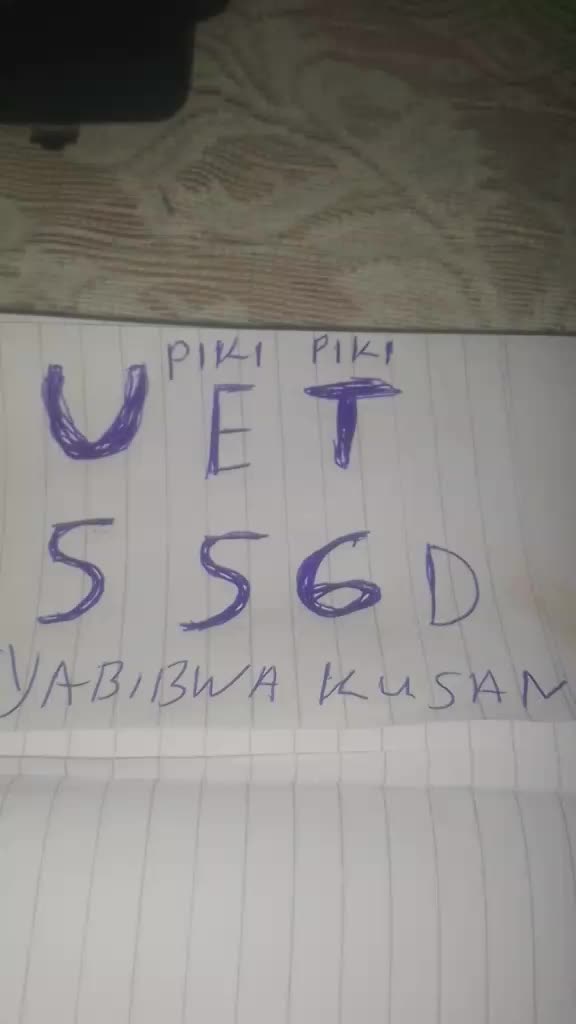 PIKI PIKI
UET
556D
YABIBWA KUSAN